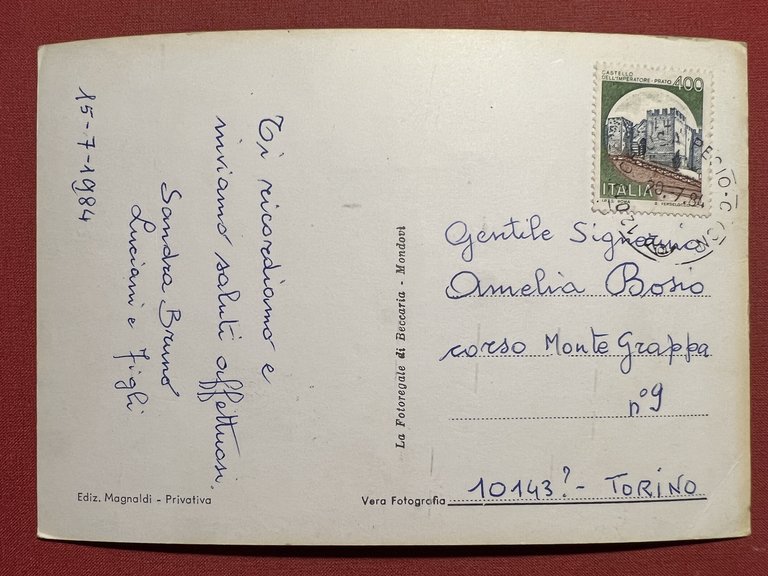 15-7-1984
Ti ricordiamo e
inviamo saluti affettuosi.
Sandra Bruno
Luciani e figli
CASTELLO
DELL'IMPERATORE - PRATO 400
ITALIA
I.P.Z.S. ROMA
20.-7.84
Gentile Signorina
Amelia Bosio
corso Monte Grappa
n° 9
10143? - TORINO
La Fotoregale di Beccaria - Mondovì
Ediz. Magnaldi - Privativa
Vera Fotografia